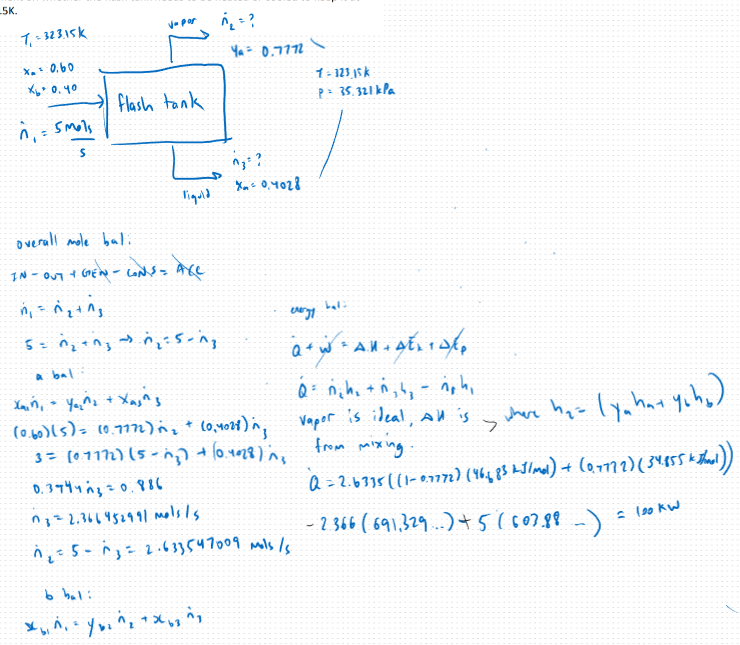 .5K.
T₁ = 323.15K
xₐ = 0.60
x_b = 0.40
ṅ₁ = 5 mols/s
flash tank
vapor
ṅ₂ = ?
yₐ = 0.7772
T = 323.15K
P = 35.321 kPa
ṅ₃ = ?
xₐ = 0.4028
liquid
overall mole bal:
IN - OUT + GEN - CONS = ACC
ṅ₁ = ṅ₂ + ṅ₃
5 = ṅ₂ + ṅ₃ → ṅ₂ = 5 - ṅ₃
a bal:
xₐ₁ṅ₁ = yₐ₂ṅ₂ + xₐ₃ṅ₃
(0.60)(5) = (0.7772)ṅ₂ + (0.4028)ṅ₃
3 = (0.7772)(5 - ṅ₃) + (0.4028)ṅ₃
0.3744ṅ₃ = 0.886
ṅ₃ = 2.366452991 mols/s
ṅ₂ = 5 - ṅ₃ = 2.633547009 mols/s
b bal:
x_b₁ṅ₁ = y_b₂ṅ₂ + x_b₃ṅ₃
energy bal:
Q̇ + Ẇ = ΔH + ΔEₖ + ΔEₚ
Q̇ = ṅ₂h₂ + ṅ₃h₃ - ṅ₁h₁
vapor is ideal, ΔH is
from mixing.
where h₂ = (yₐhₐ + y_bh_b)
Q = 2.6335((1-0.7772)(46.683 kJ/mol) + (0.7772)(34.855 kJ/mol))
- 2.366(691.329...) + 5(603.88...) = 100 kW